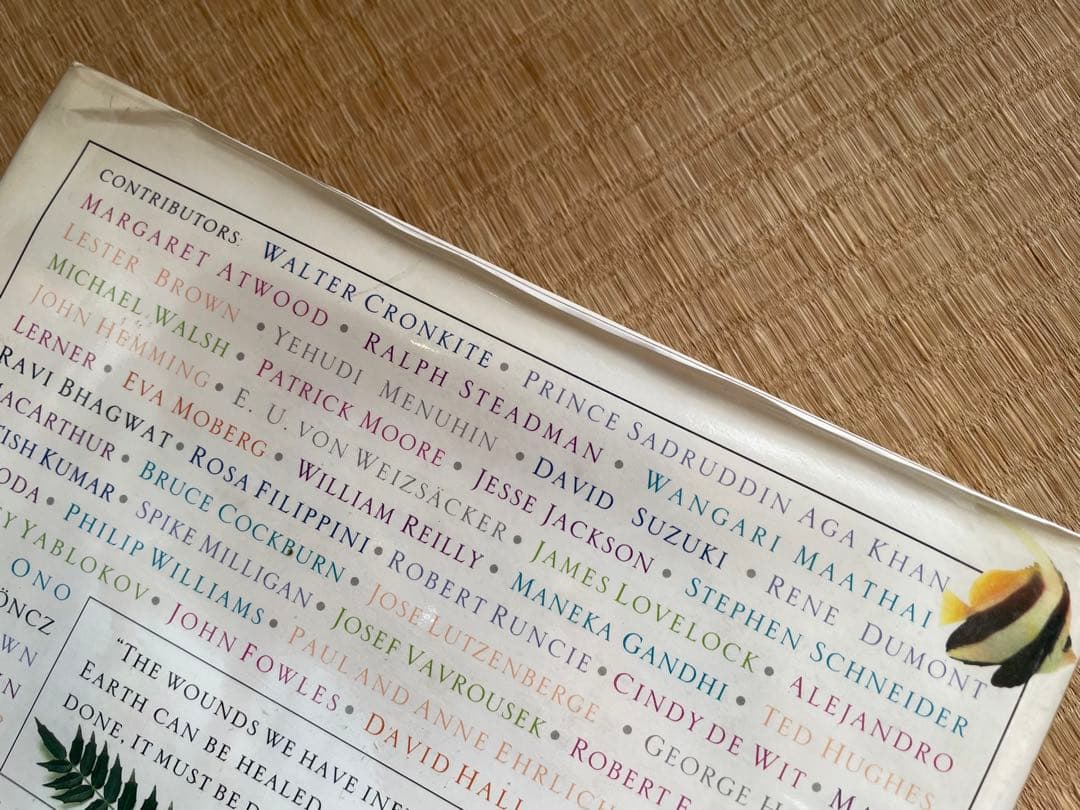 CONTRIBUTORS: WALTER CRONKITE • PRINCE SADRUDDIN AGA KHAN
MARGARET ATWOOD • RALPH STEADMAN • WANGARI MAATHAI
LESTER BROWN • YEHUDI MENUHIN • DAVID SUZUKI • RENE DUMONT
MICHAEL WALSH • PATRICK MOORE • JESSE JACKSON • STEPHEN SCHNEIDER
JOHN HEMMING • E. U. VON WEIZSÄCKER • JAMES LOVELOCK • ALEJANDRO
LERNER • EVA MOBERG • WILLIAM REILLY • MANEKA GANDHI • TED HUGHES
RAVI BHAGWAT • ROSA FILIPPINI • ROBERT RUNCIE • CINDY DE WIT •
MACARTHUR • BRUCE COCKBURN • JOSE LUTZENBERGE • GEORGE
KUMAR • SPIKE MILLIGAN • JOSEF VAVROUSEK • ROBERT
• PHILIP WILLIAMS • PAUL AND ANNE EHRLICH
YABLOKOV • JOHN FOWLES • DAVID HALL
ONO
"THE WOUNDS WE HAVE
EARTH CAN BE HEALED
DONE, IT MUST BE